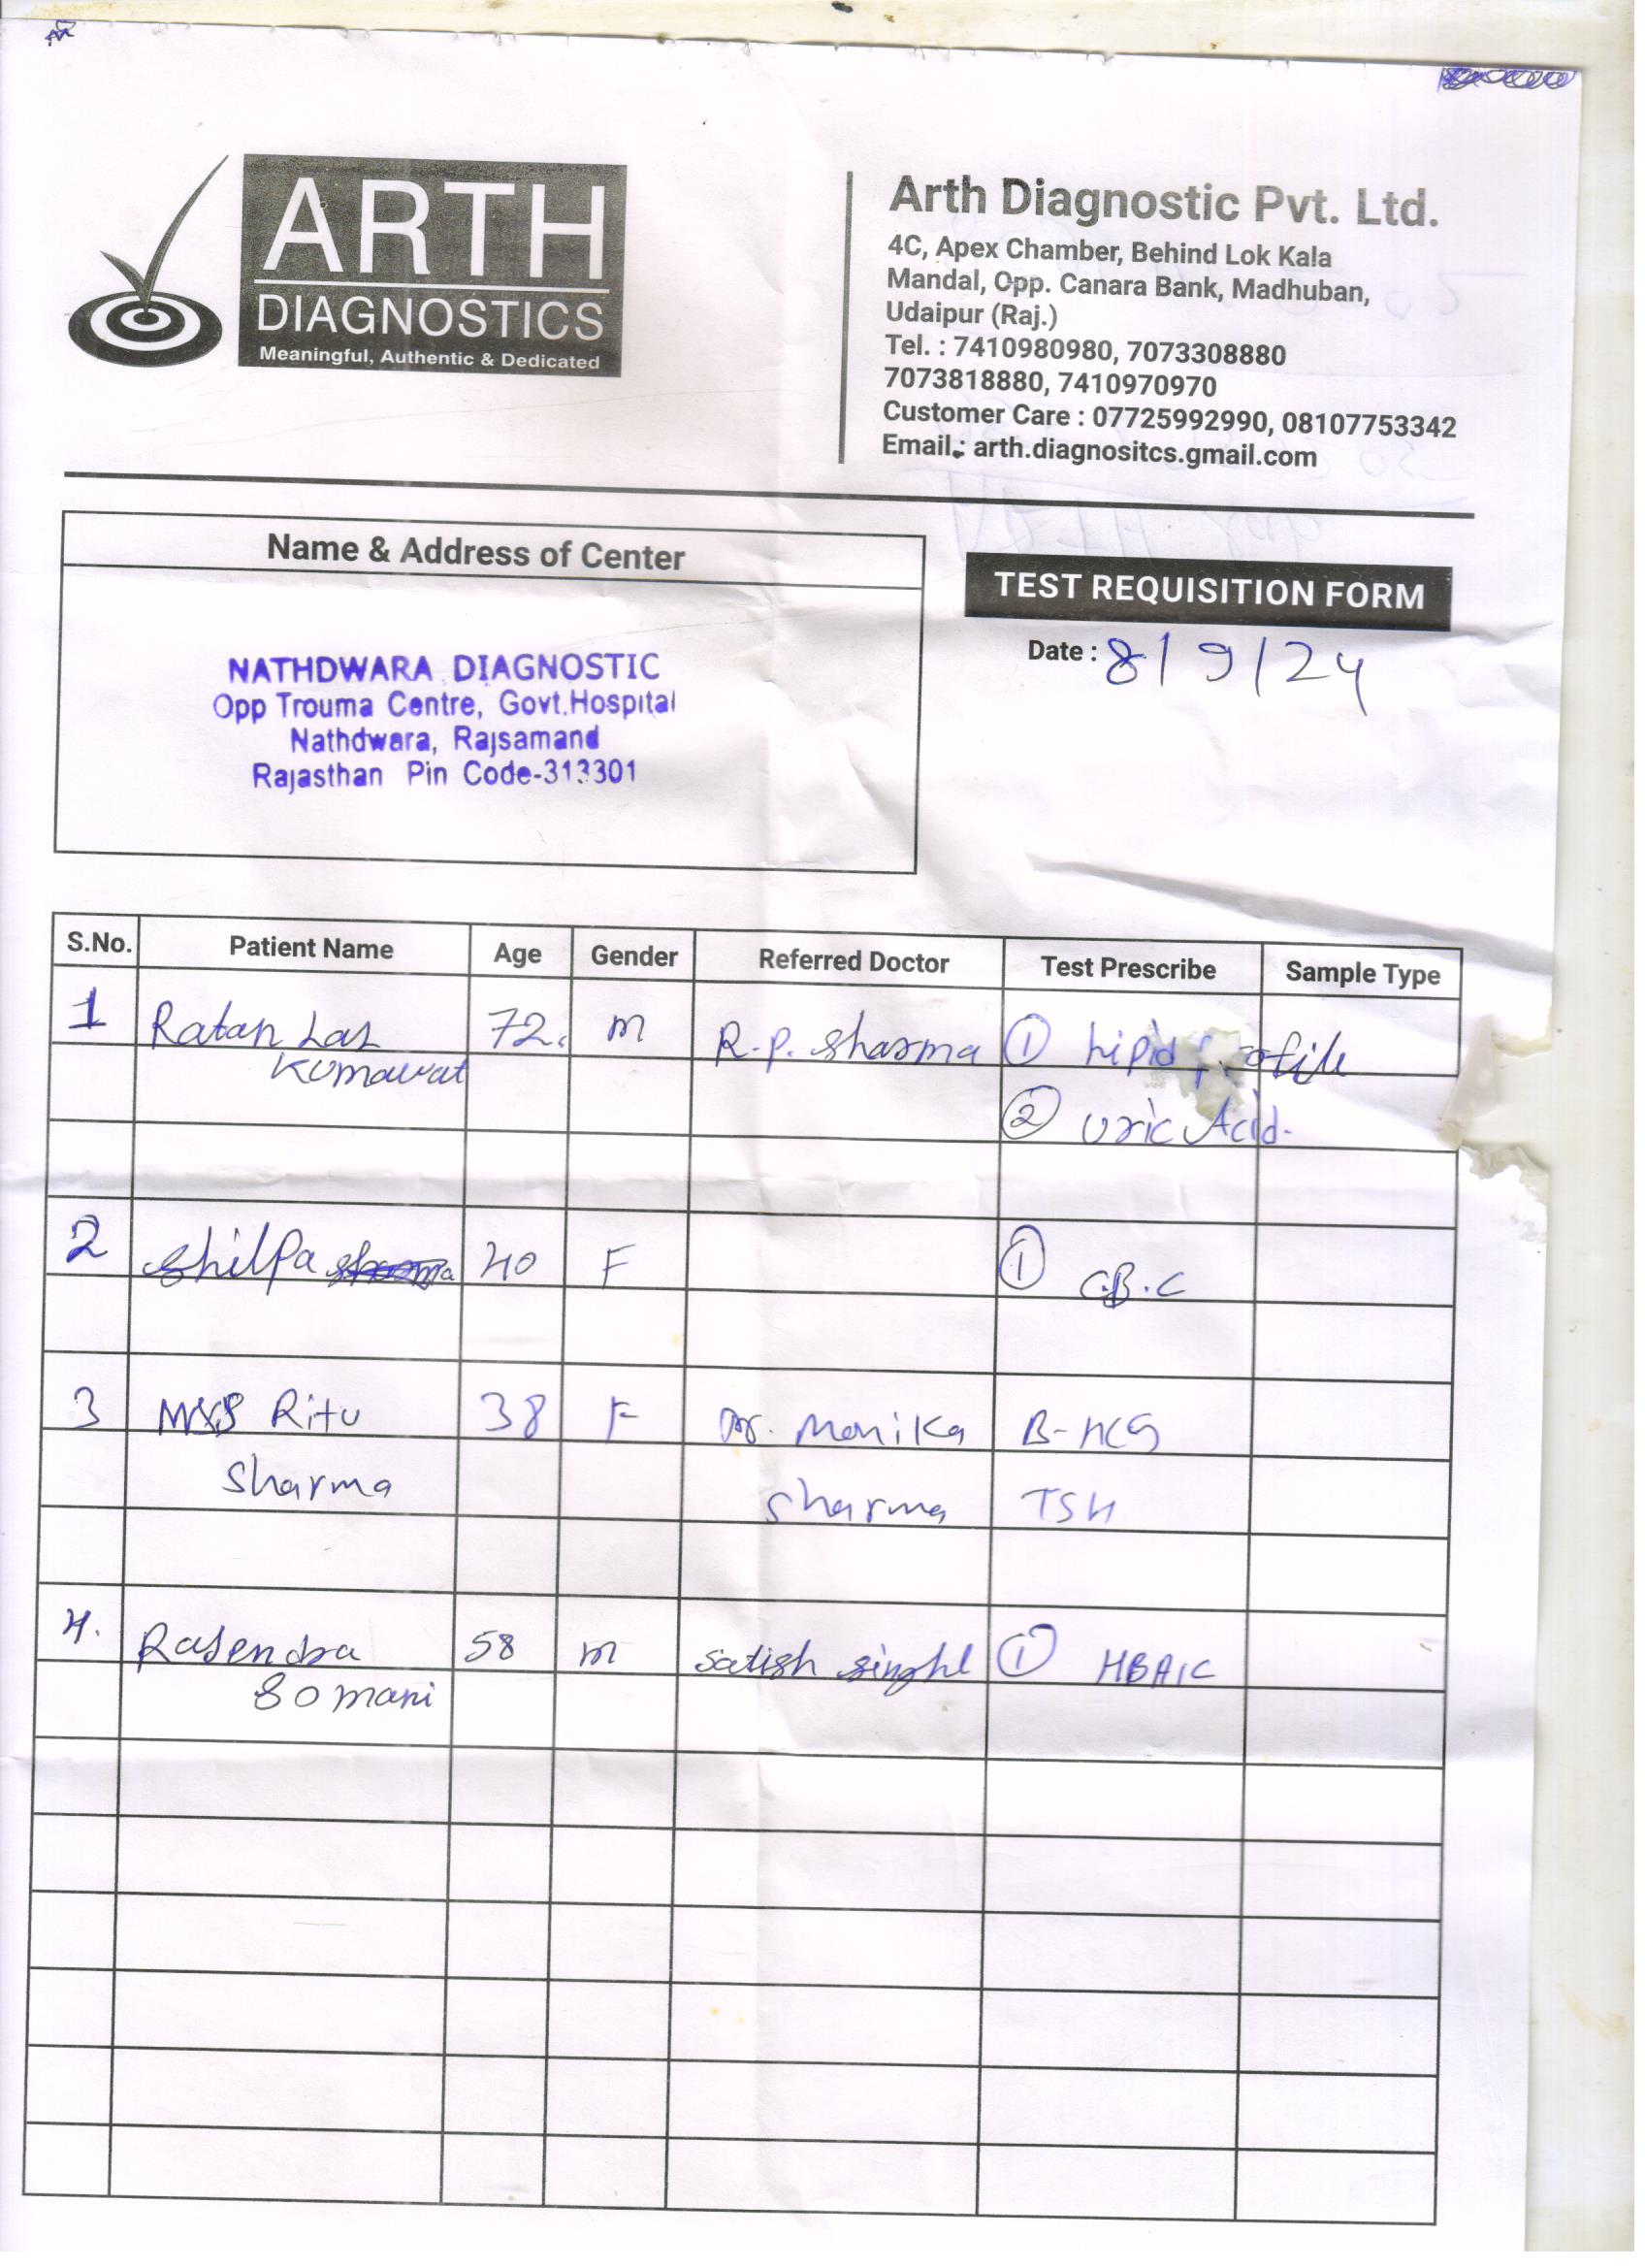 ARTH
DIAGNOSTICS
Meaningful, Authentic & Dedicated
Arth Diagnostic Pvt. Ltd.
4C, Apex Chamber, Behind Lok Kala
Mandal, Opp. Canara Bank, Madhuban,
Udaipur (Raj.)
Tel. : 7410980980, 7073308880
7073818880, 7410970970
Customer Care : 07725992990, 08107753342
Email.: arth.diagnositcs.gmail.com
Name & Address of Center
NATHDWARA DIAGNOSTIC
Opp Trouma Centre, Govt.Hospital
Nathdwara, Rajsamand
Rajasthan Pin Code-313301
TEST REQUISITION FORM
Date : 8/9/24
S.No. Patient Name Age Gender Referred Doctor Test Prescribe Sample Type
1 Ratan Lal 72. m R.p. Sharma ① Lipid profile
Kumawat
② Uric Acid.
2 Shilpa 40 F ① C.B.C
3 Mrs Ritu 38 F Dr. Monika B-HCG
Sharma Sharma TSH
4. Rajendra 58 m Satish Singhl ① HBA1C
Somani